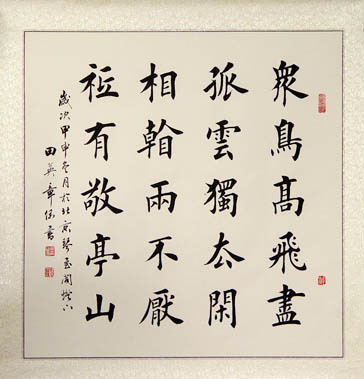 衆鳥高飛盡
孤雲獨厺閑
相看兩不厭
祗有敬亭山
歲次甲申冬月於北京
田英章書